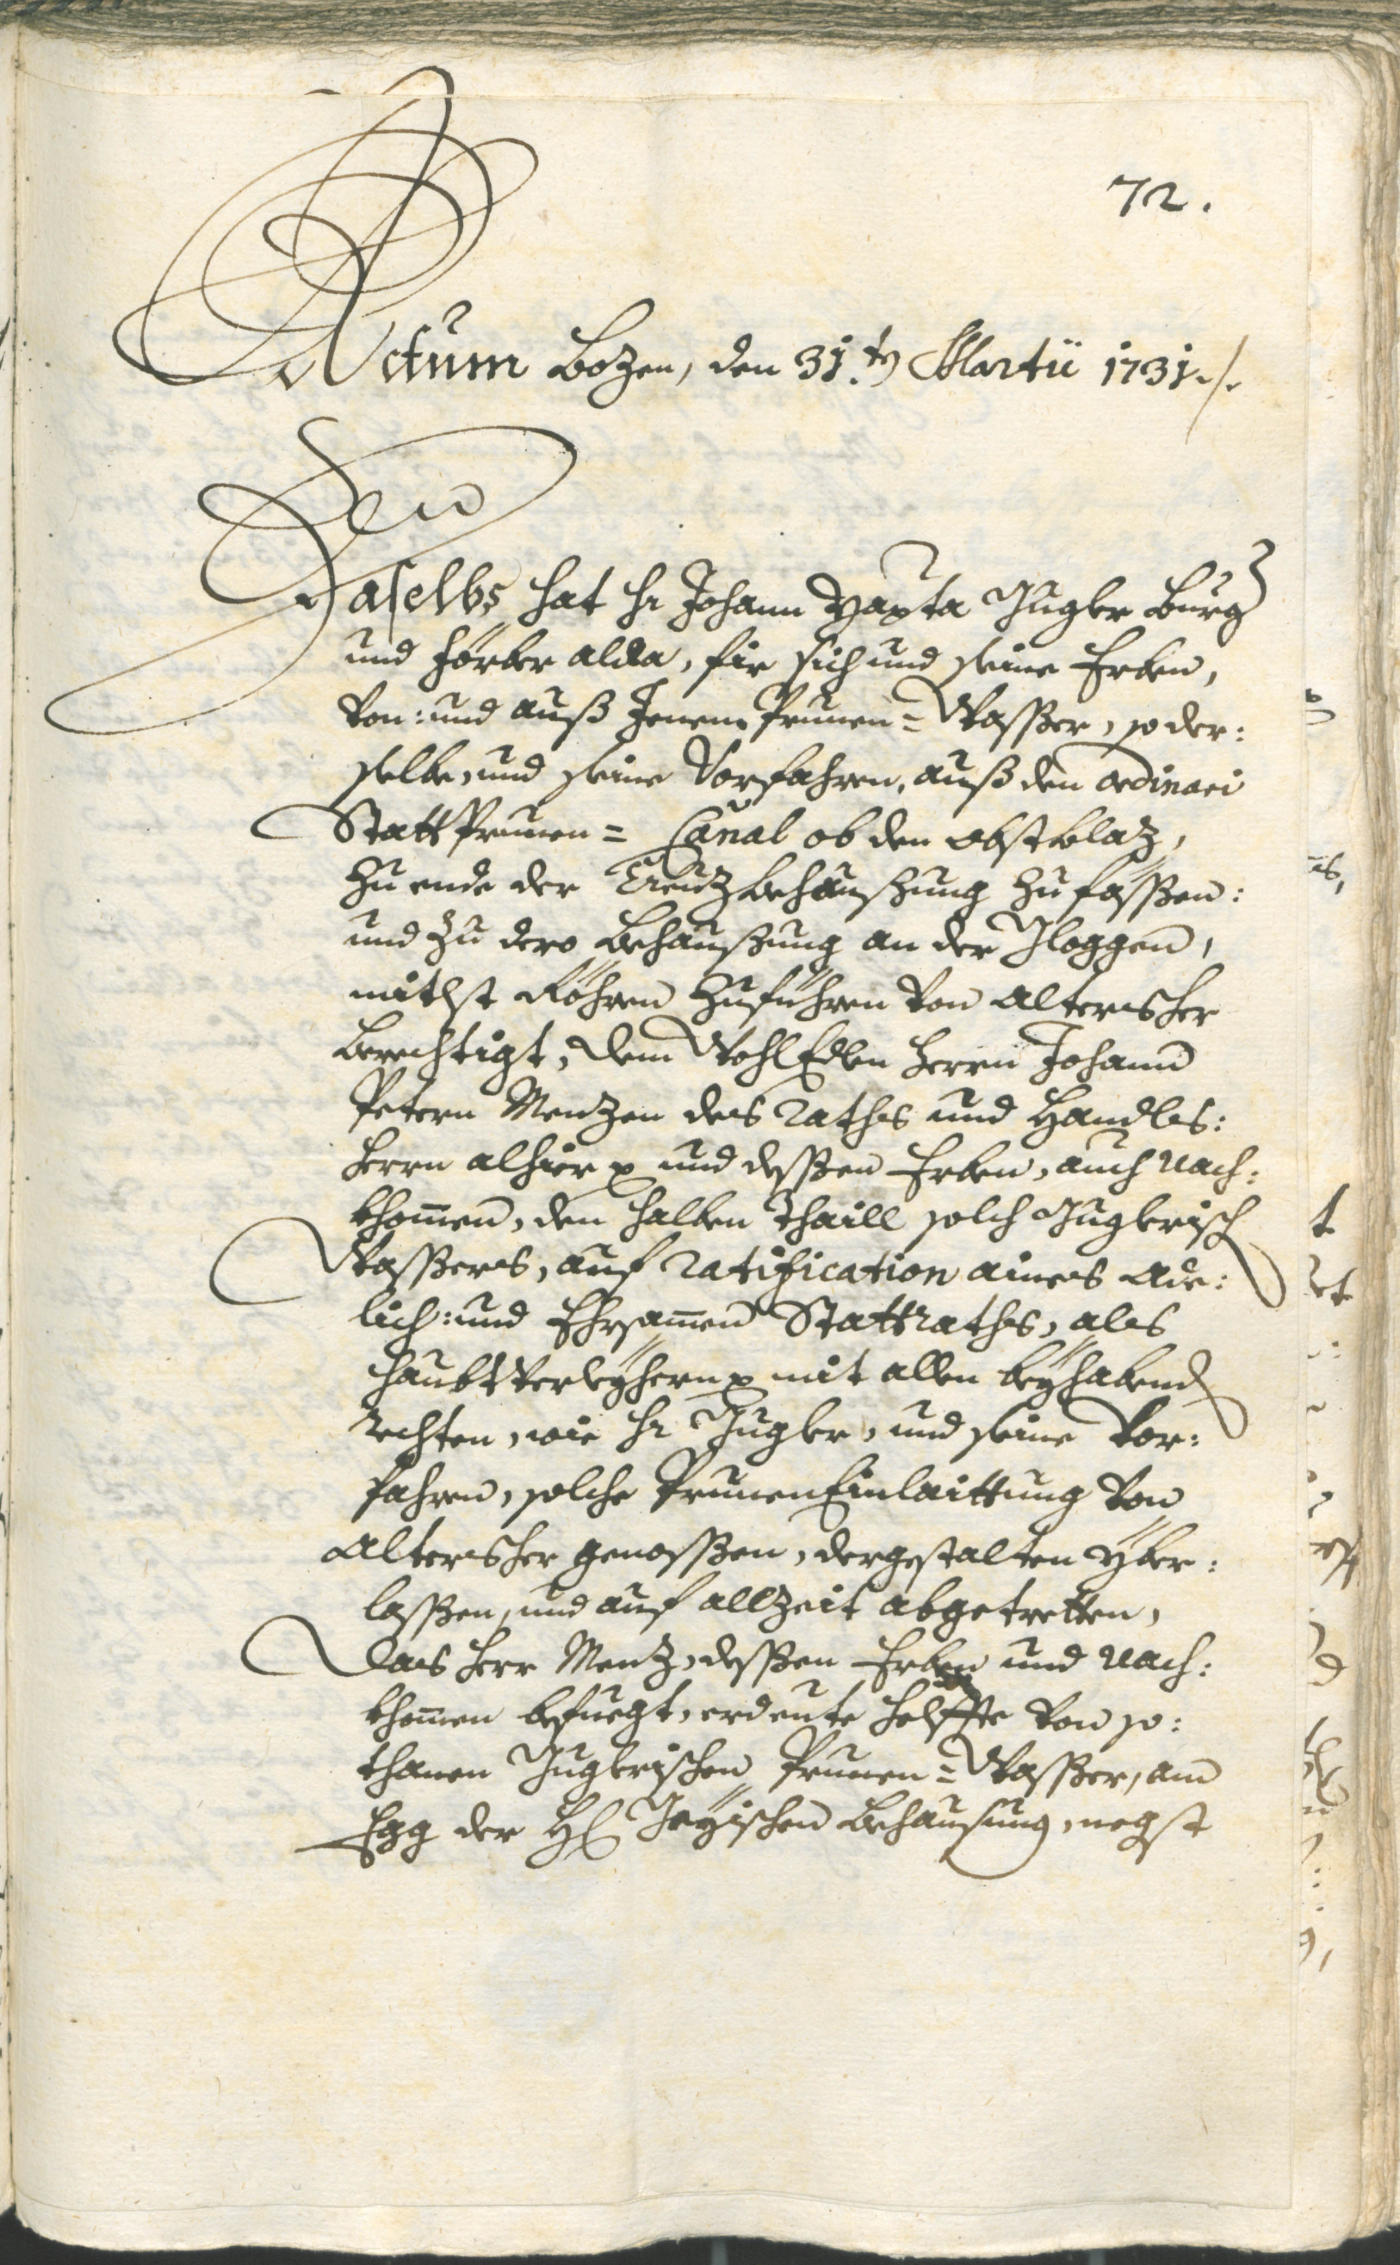 72.
Actum Bozen, den 31.ten Martii 1731 ./.
Daselbs hat Hr Johann Bapta Jugler Burg
und Förber alda, fir sich und seine Erben,
Von: und auß Jenem Prunen=Wasser, so der:
selbe, und seine Vorfahren, auß den ordinari
Statt Prunen= Canal ob den obstblaz,
Zu ende der Creuz behaußung zu fassen:
und zu dero Behaußung an der Gloggen,
mitlst Röhren zuführen Von altersher
Berechtigt, dem WohlEdlen Herrn Johann
Petern Menzen des Raths und Handls:
herrn alhier und dessen Erben, auch Nach:
khomen, den halben Thaill solch Juglerisch
Wassers, auf ratification aines Ade:
lich: und Ehrsamen StattRaths, als
haubt Verleyhern mit allen beyhabend
rechten, wie Hr Jugler, und seine Vor:
fahren, solche PrunenEinlaittung Von
Altersher genossen, dergestalten yber:
lassen, und auf allzeit abgetretten,
Das Herr Menz, dessen Erben und Nach:
khomen befuegt, erdeute helffte Von so:
thanen Juglerischen Prunen=Wasser, am
Egg der Behausung, negst